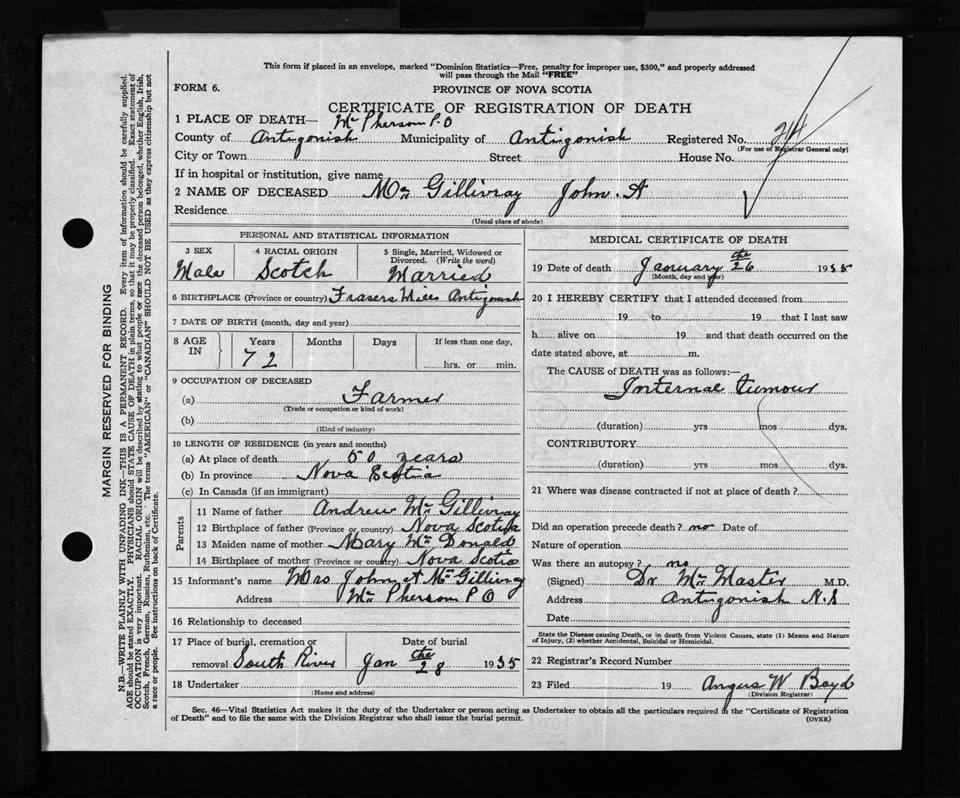 This form if placed in an envelope, marked "Dominion Statistics—Free, penalty for improper use, $300," and properly addressed
will pass through the Mail "FREE"
FORM 6.
PROVINCE OF NOVA SCOTIA
CERTIFICATE OF REGISTRATION OF DEATH
1 PLACE OF DEATH— Mc Pherson P.O
County of Antigonish Municipality of Antigonish Registered No. 24
(For use of Registrar General only)
City or Town Street House No.
If in hospital or institution, give name
2 NAME OF DECEASED Mc Gillivray John. A
Residence
(Usual place of abode)
PERSONAL AND STATISTICAL INFORMATION
3 SEX 4 RACIAL ORIGIN 5 Single, Married, Widowed or
Divorced. (Write the word)
Male Scotch Married
6 BIRTHPLACE (Province or country) Frasers Mills Antigonish
7 DATE OF BIRTH (month, day and year)
8 AGE IN Years Months Days If less than one day,
72 hrs. or min.
9 OCCUPATION OF DECEASED
(a) Farmer
(Trade or occupation or kind of work)
(b)
(Kind of industry)
10 LENGTH OF RESIDENCE (in years and months)
(a) At place of death 50 years
(b) In province Nova Scotia
(c) In Canada (if an immigrant)
Parents
11 Name of father Andrew Mc Gillivray
12 Birthplace of father (Province or country) Nova Scotia
13 Maiden name of mother Mary Mc Donald
14 Birthplace of mother (Province or country) Nova Scotia
15 Informant's name Mrs John A Mc Gillivray
Address Mc Pherson P O
16 Relationship to deceased
17 Place of burial, cremation or Date of burial
removal South River Jan the 28 1935
18 Undertaker
(Name and address)
MEDICAL CERTIFICATE OF DEATH
19 Date of death January the 26 1935
(Month, day and year)
20 I HEREBY CERTIFY that I attended deceased from
19 to 19 that I last saw
h alive on 19 and that death occurred on the
date stated above, at m.
The CAUSE OF DEATH was as follows:—
Internal tumour
(duration) yrs mos dys.
CONTRIBUTORY
(duration) yrs mos dys.
21 Where was disease contracted if not at place of death?
Did an operation precede death? no Date of
Nature of operation
Was there an autopsy? no
(Signed) Dr Mc Master M.D.
Address Antigonish N.S
Date
State the Disease causing Death, or in death from Violent Causes, state (1) Means and Nature
of Injury, (2) whether Accidental, Suicidal or Homicidal.
22 Registrar's Record Number
23 Filed 19 Angus W Boyd
(Division Registrar)
Sec. 46—Vital Statistics Act makes it the duty of the Undertaker or person acting as Undertaker to obtain all the particulars required in the "Certificate of Registration
of Death" and to file the same with the Division Registrar who shall issue the burial permit. (OVER)
MARGIN RESERVED FOR BINDING
N.B.—WRITE PLAINLY WITH UNFADING INK—THIS IS A PERMANENT RECORD. Every item of information should be carefully supplied.
AGE should be stated EXACTLY. PHYSICIANS should STATE CAUSE OF DEATH in plain terms so that it may be properly classified. Exact statement of
OCCUPATION is very important. RACIAL ORIGIN will be described by stating to what people or race the deceased person belonged, whether English, Irish,
Scotch, French, German, Russian, Ruthenian, etc. The terms "AMERICAN" or "CANADIAN" SHOULD NOT BE USED as they express citizenship but not
a race or people. See instructions on back of Certificate.